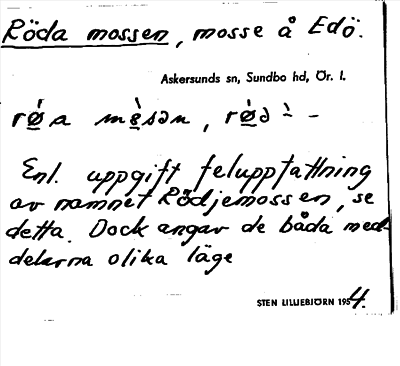 Röda mossen, mosse å Edö.
Askersunds sn, Sundbo hd, Ör. l.
Enl. uppgift feluppfattning
av namnet Rödjemossen, se
detta. Dock angav de båda med-
delarna olika läge
STEN LILLIEBJÖRN 1954.